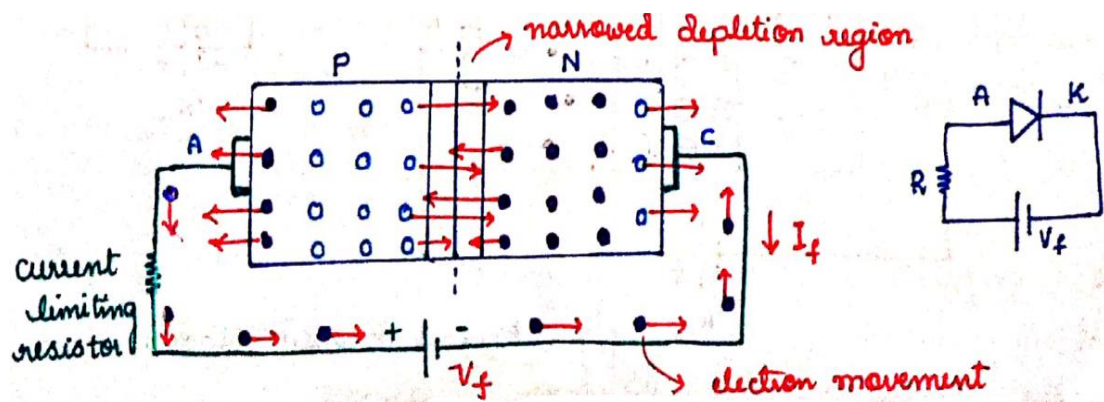 narrowed depletion region
P
N
A
C
current
limiting
resistor
+
-
V_f
I_f
election movement
A
K
R
V_f